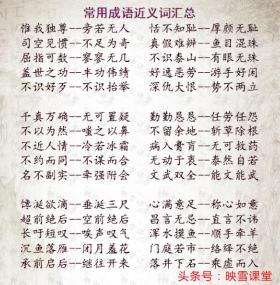 常用成语近义词汇总
惟我独尊--旁若无人 恬不知耻--厚颜无耻
司空见惯--不足为奇 真假难辨--鱼目混珠
屈指可数--寥寥无几 不识泰山--有眼无珠
盖世之功--丰功伟绩 好逸恶劳--游手好闲
不识好歹--不识抬举 深仇大恨--势不两立
千真万确--无可置疑 勤勤恳恳--任劳任怨
不以为然--嗤之以鼻 不留余地--斩草除根
不近人情--冷若冰霜 病入膏肓--无可救药
不约而同--不谋而合 无动于衷--泰然自若
名不副实--牵强附会 文武双全--能文能武
馋涎欲滴--垂涎三尺 心满意足--称心如意
超前绝后--空前绝后 昌言无忌--直言不讳
长吁短叹--唉声叹气 浑水摸鱼--顺手牵羊
沉鱼落雁--闭月羞花 门庭若市--络绎不绝
承前启后--继往开来 落井下石--乘虚而入
头条号:映雪课堂